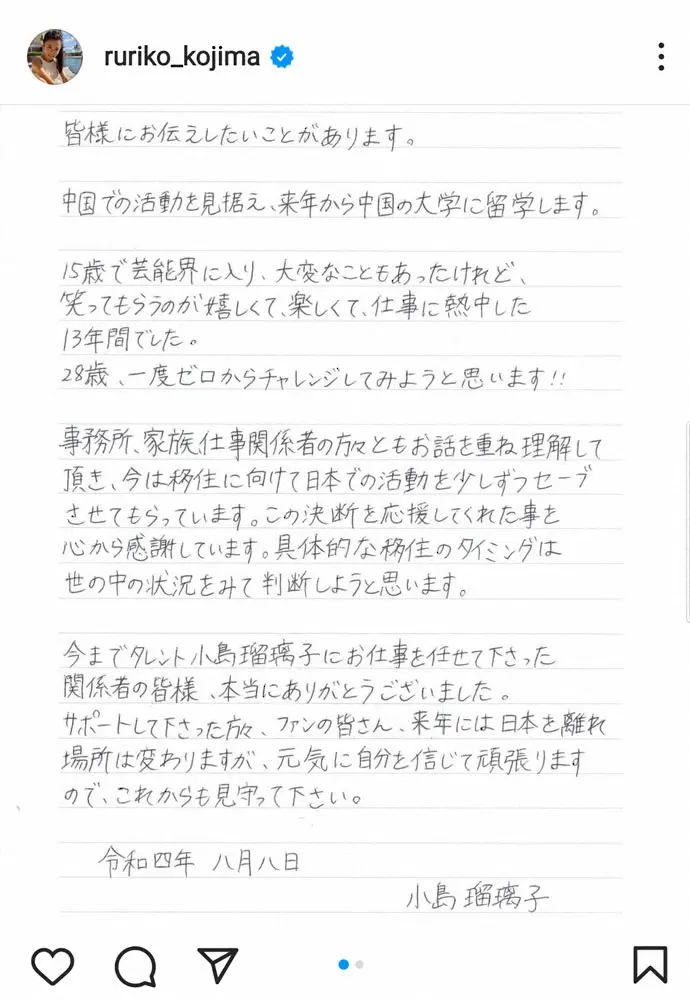 ruriko_kojima
皆様にお伝えしたいことがあります。
中国での活動を見据え、来年から中国の大学に留学します。
15歳で芸能界に入り、大変なこともあったけれど、
笑ってもらうのが嬉しくて、楽しくて、仕事に熱中した
13年間でした。
28歳、一度ゼロからチャレンジしてみようと思います!!
事務所、家族、仕事関係者の方々ともお話を重ね理解して
頂き、今は移住に向けて日本での活動を少しずつセーブ
させてもらっています。この決断を応援してくれた事を
心から感謝しています。具体的な移住のタイミングは
世の中の状況をみて判断しようと思います。
今までタレント小島瑠璃子にお仕事を任せて下さった
関係者の皆様、本当にありがとうございました。
サポートして下さった方々、ファンの皆さん、来年には日本を離れ
場所は変わりますが、元気に自分を信じて頑張ります
ので、これからも見守って下さい。
令和四年 八月八日
小島瑠璃子